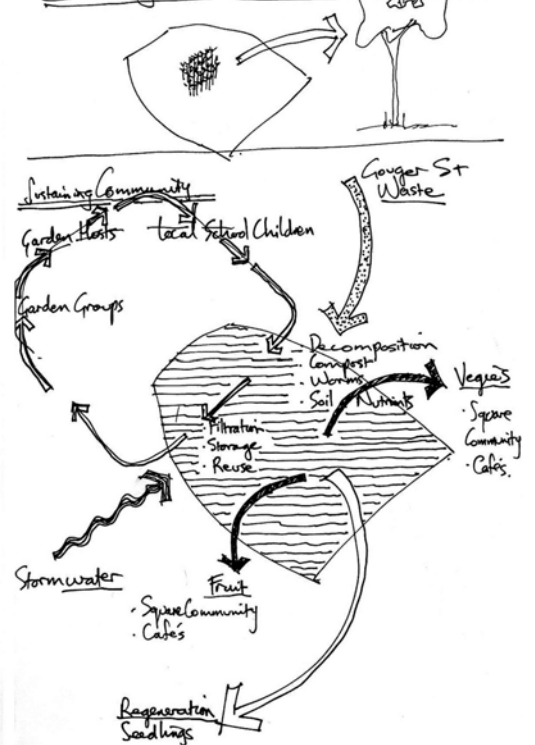 Gouger St
Waste
Sustaining Community
Garden Hosts
Local School Children
Garden Groups
Decomposition
Compost
· Worms
· Soil Nutrients
Vegies
· Square
Community
· Cafés.
· Filtration
· Storage
· Reuse
Stormwater
Fruit
· Square Community
· Cafés
Regeneration
Seedlings